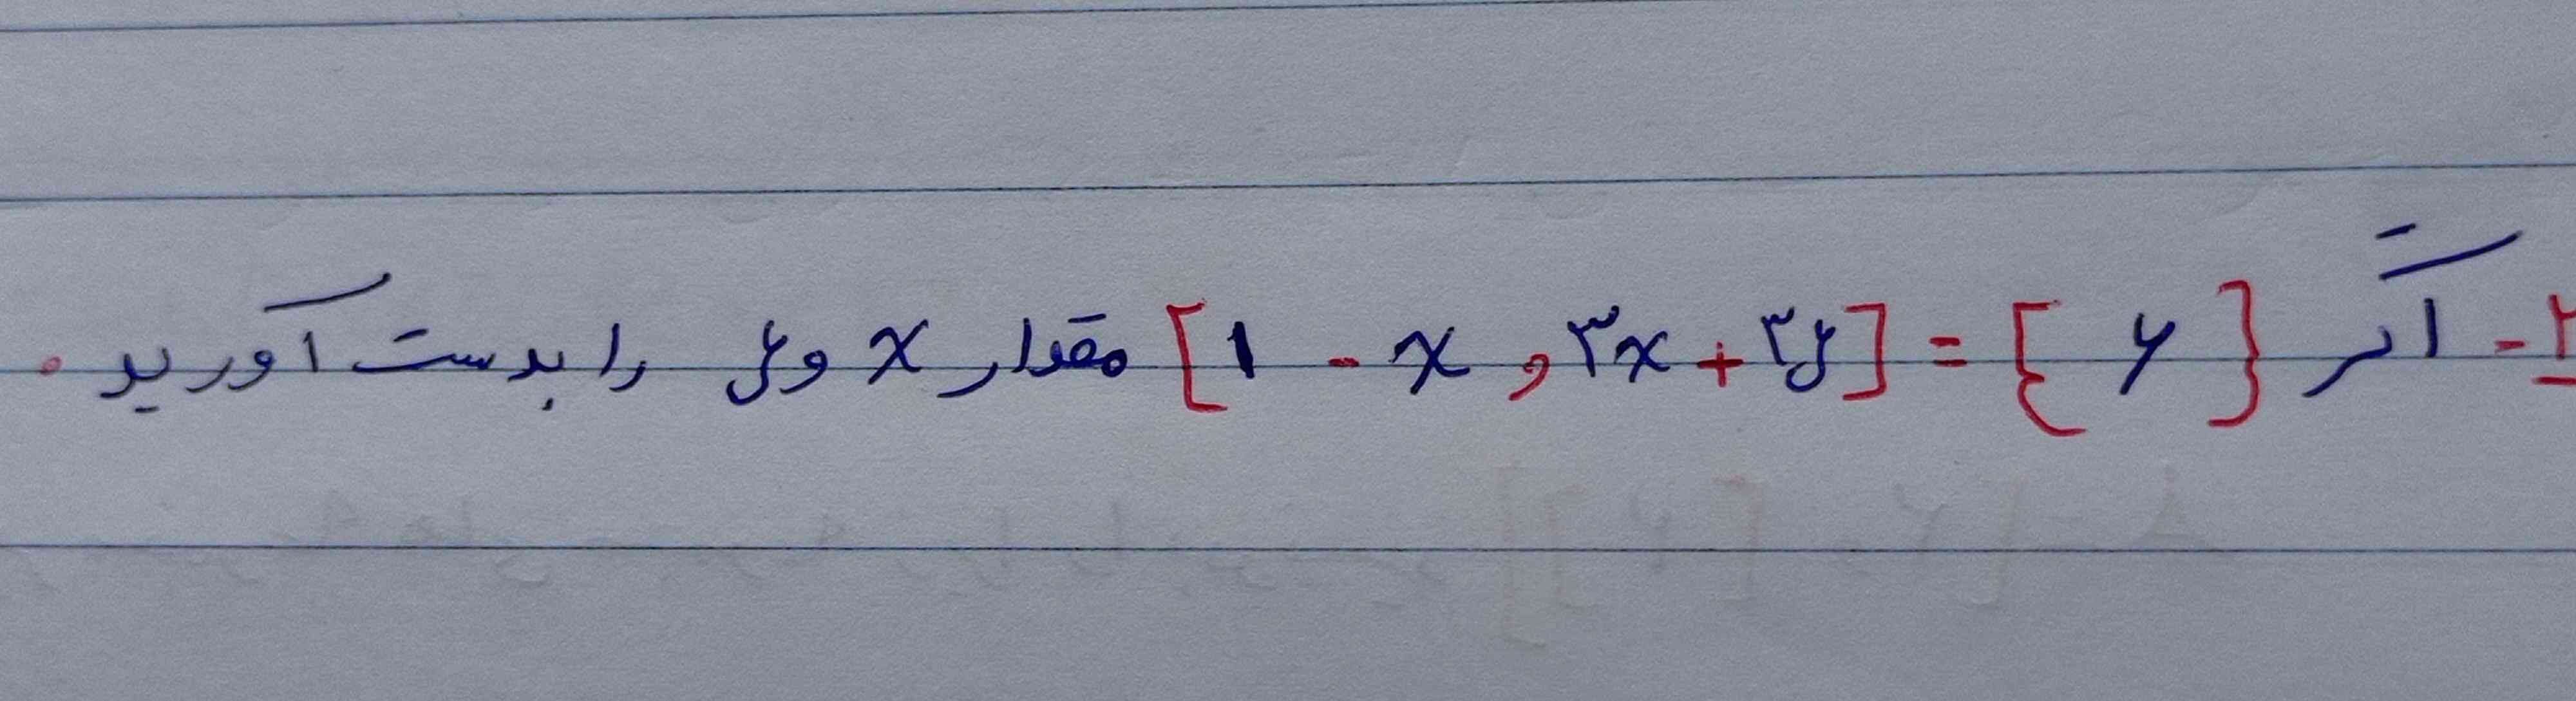 ۲- اگر [1 - x و ۳x + ۳y] = { ۶ } مقدار x و y را بدست آورید .